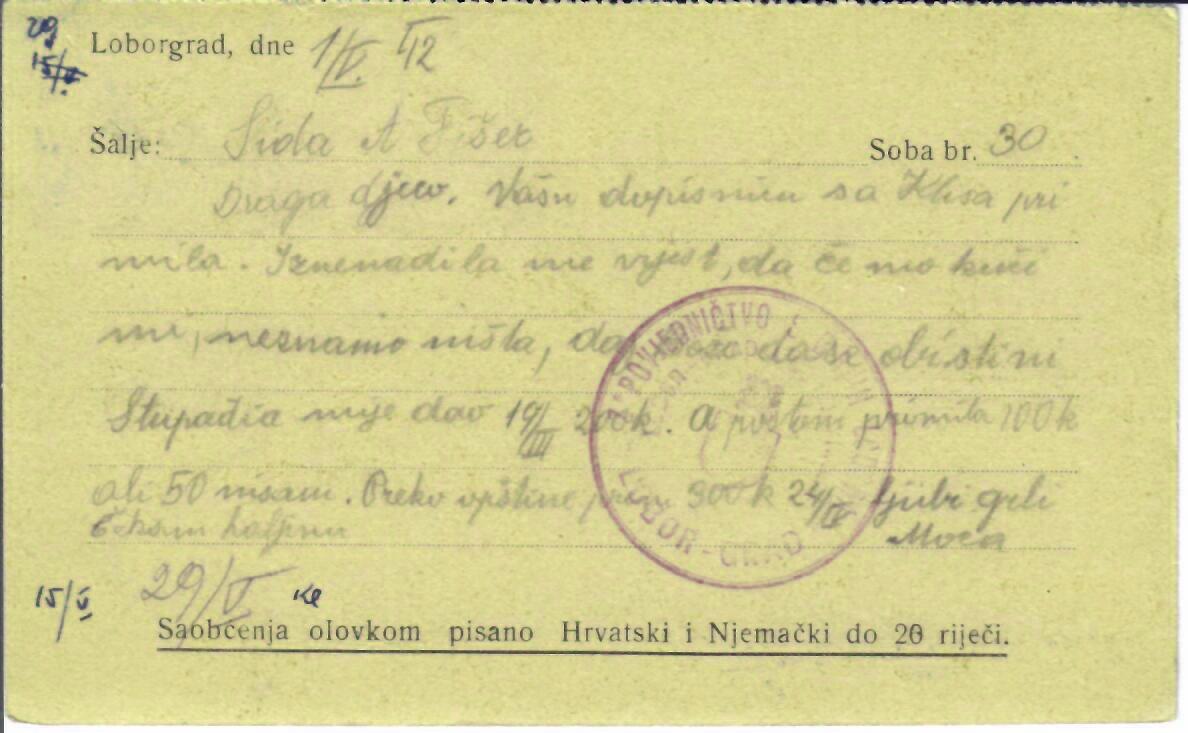 29
15/V.
Loborgrad, dne 1/V. 42
Šalje: Sida A Fišer Soba br. 30
Draga djeco. Vašu dopisnicu sa Klisa pri
mila. Iznenadila me vijest, da će mo kući
mi, neznamo ništa, da se obistini
Stupađia nije dao 19/III 200k. a poštom primila 100k
ali 50 nisam. Preko opštine, 300 k 24/IV ljubi grli
čekam haljinu Moca
15/V 29/V
Saobćenja olovkom pisano Hrvatski i Njemački do 20 riječi.
POVJEDNIČTVO
LOBOR-GRAD